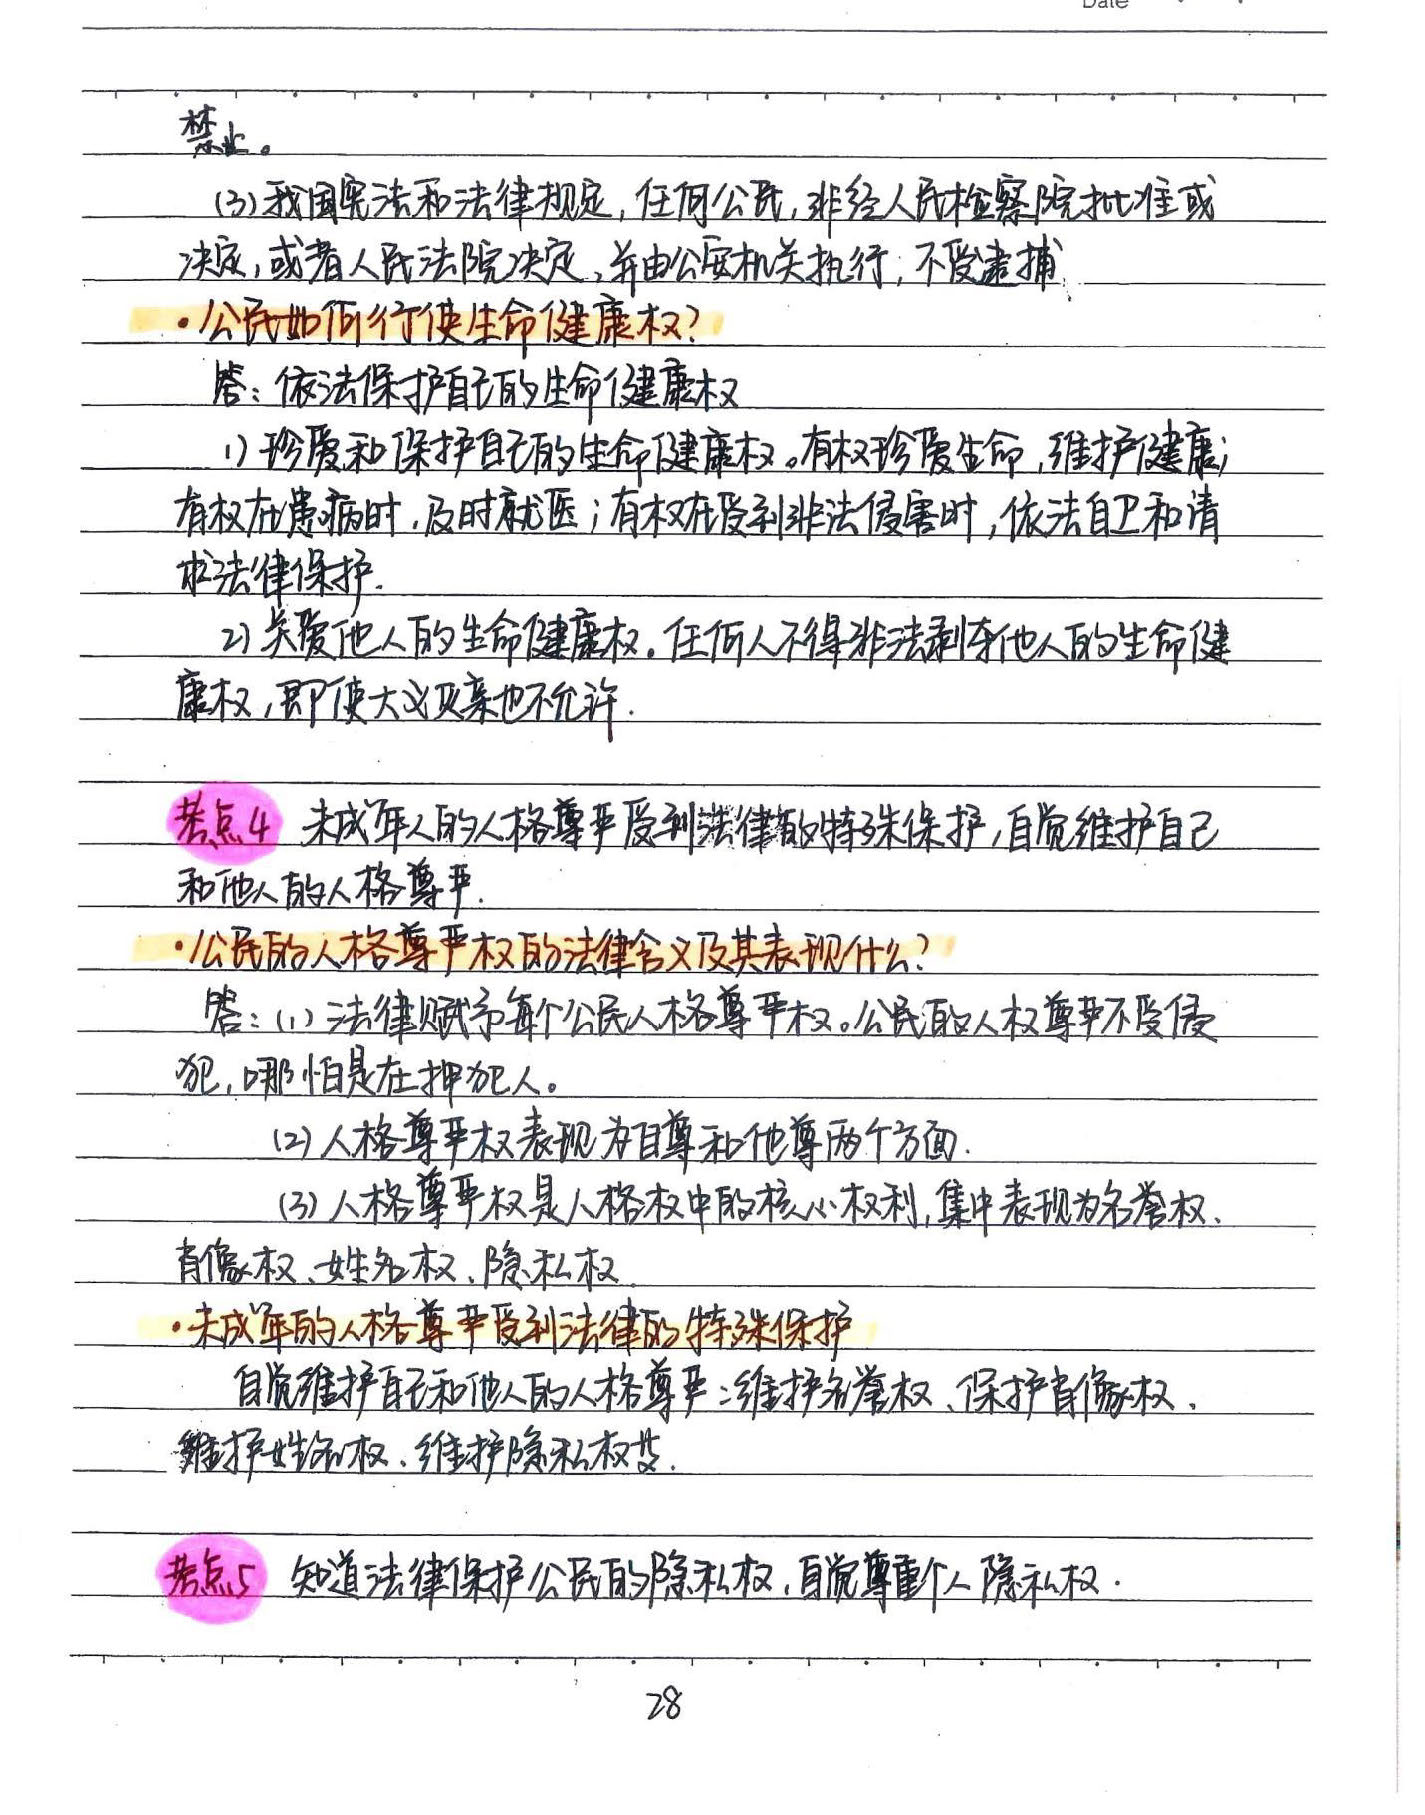 Date
禁止。
(3)我国宪法和法律规定,任何公民,非经人民检察院批准或
决定,或者人民法院决定,并由公安机关执行,不受逮捕.
·公民如何行使生命健康权?
答:依法保护自己的生命健康权
1)珍爱和保护自己的生命健康权。有权珍爱生命,维护健康;
有权在患病时,及时就医;有权在受到非法侵害时,依法自卫和请
求法律保护.
2)关爱他人的生命健康权。任何人不得非法剥夺他人的生命健
康权,即使大义灭亲也不允许.
考点4 未成年人的人格尊严受到法律的特殊保护,自觉维护自己
和他人的人格尊严.
·公民的人格尊严权的法律含义及其表现什么?
答:(1)法律赋予每个公民人格尊严权。公民的人权尊严不受侵
犯,哪怕是在押犯人。
(2)人格尊严权表现为自尊和他尊两个方面.
(3)人格尊严权是人格权中的核心权利,集中表现为名誉权、
肖像权、姓名权、隐私权.
·未成年的人格尊严受到法律的特殊保护
自觉维护自己和他人的人格尊严:维护名誉权、保护肖像权、
维护姓名权、维护隐私权等.
考点5 知道法律保护公民的隐私权,自觉尊重个人隐私权.
28